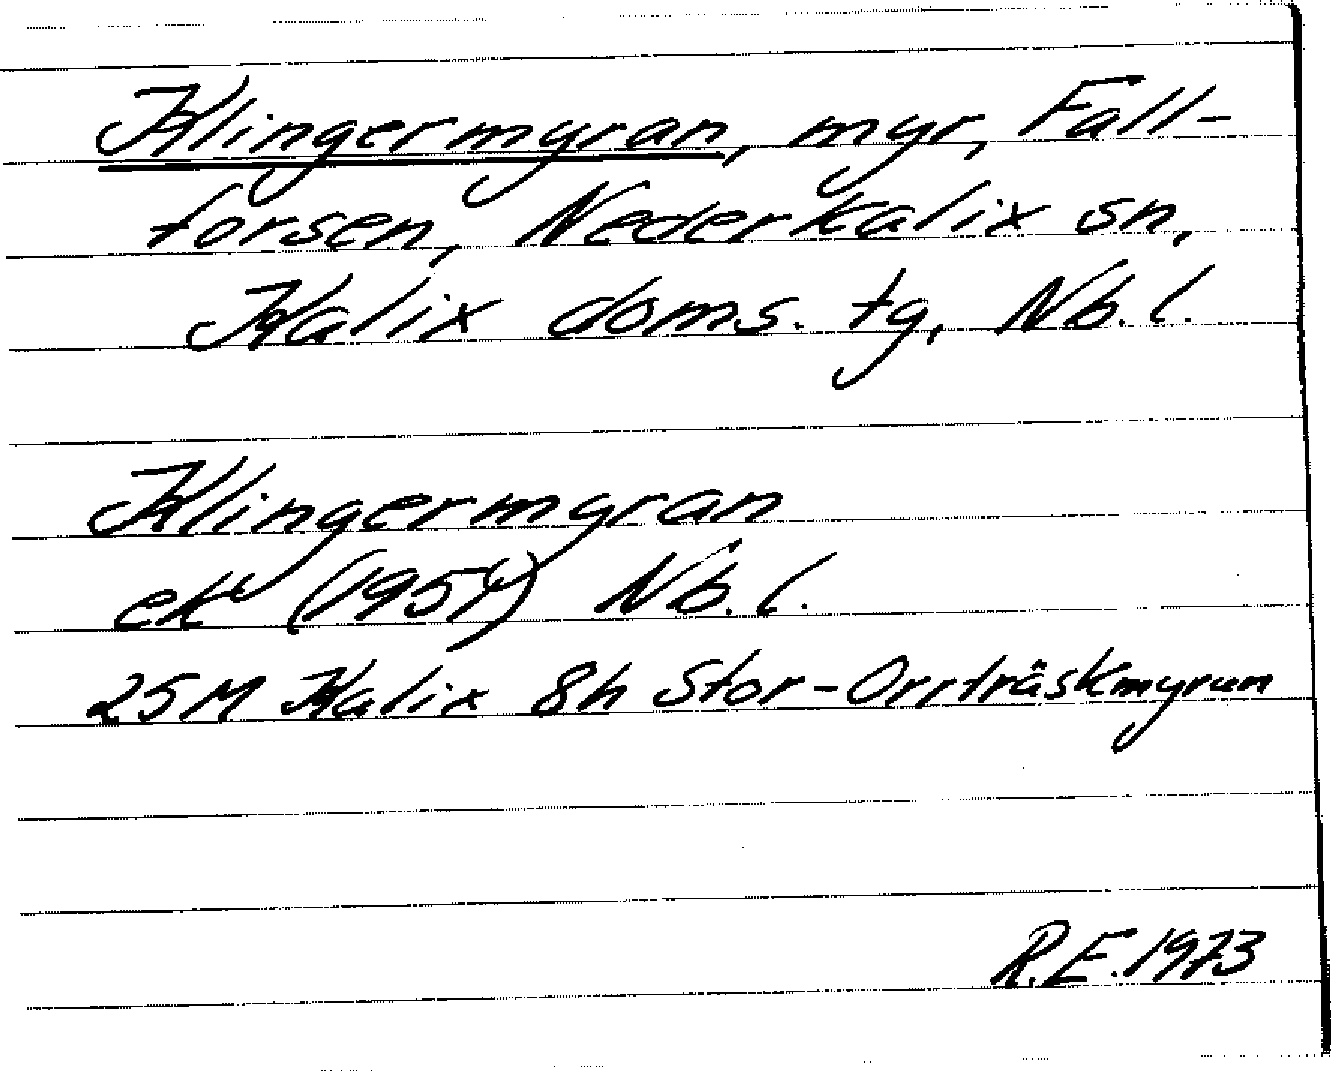 Klingermyran, myr, Fall-
forsen, Nederkalix sn,
Kalix doms. tg, Nb. l.
Klingermyran
ek (1951) Nb. l.
25M Kalix 8h Stor-Orrträskmyran
R.E. 1973